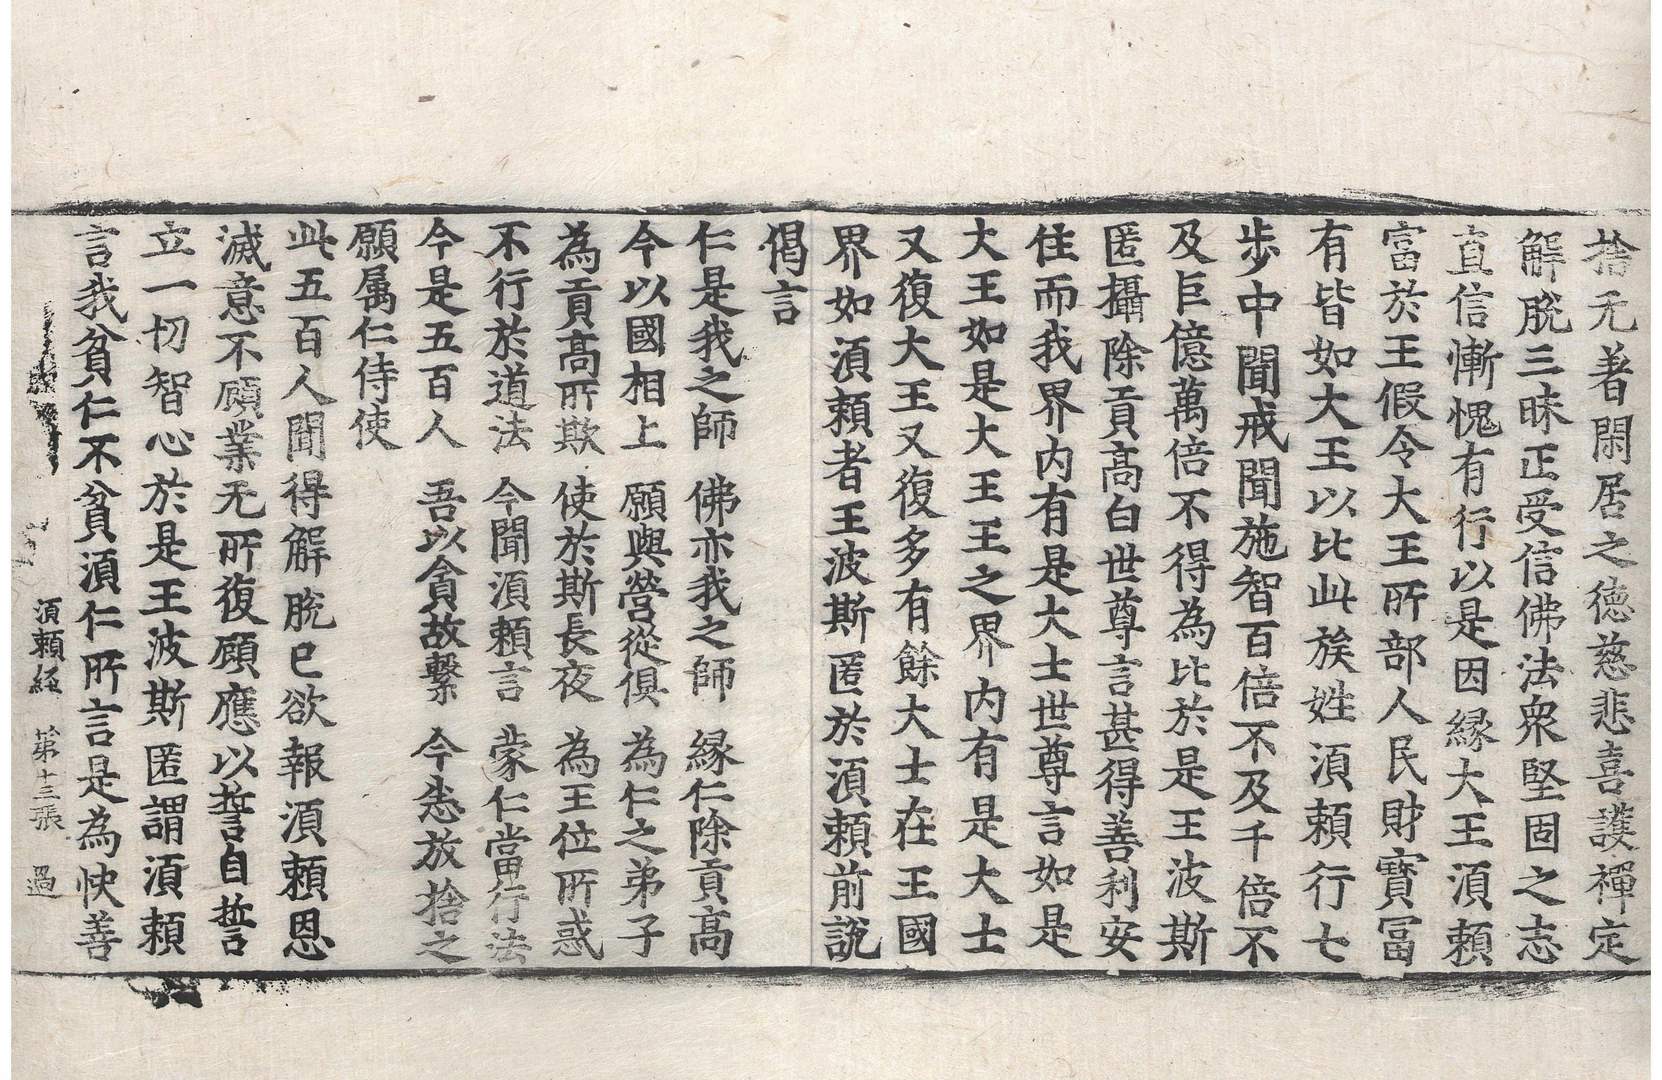 捨无著閑居之德慈悲喜護禪定
解脫三昧正受信佛法衆堅固之志
直信慚愧有行以是因緣大王湏頼
富於王假令大王所部人民財寶冨
有皆如大王以比此族姓湏頼行七
步中聞戒聞施智百倍不及千倍不
及巨億萬倍不得為比於是王波斯
匿攝除貢髙白世尊言甚得善利安
住而我界内有是大士世尊言如是
大王如是大王王之界内有是大士
又復大王又復多有餘大士在王國
界如湏頼者王波斯匿於湏頼前說
偈言
仁是我之師　佛亦我之師　縁仁除貢髙
今以國相上　願與營從俱　為仁之弟子
為貢髙所欺　使於斯長夜　為王位所惑
不行於道法　今聞湏頼言　蒙仁當行法
今是五百人　吾以貪故繫　今恚放捨之
願属仁侍使
此五百人聞得解脫已欲報湏頼恩
滅意不顧業无所復顧應以誓自誓
立一切智心於是王波斯匿謂湏頼
言我貧仁不貧湏仁所言是為快善
湏頼經　第十三張　過